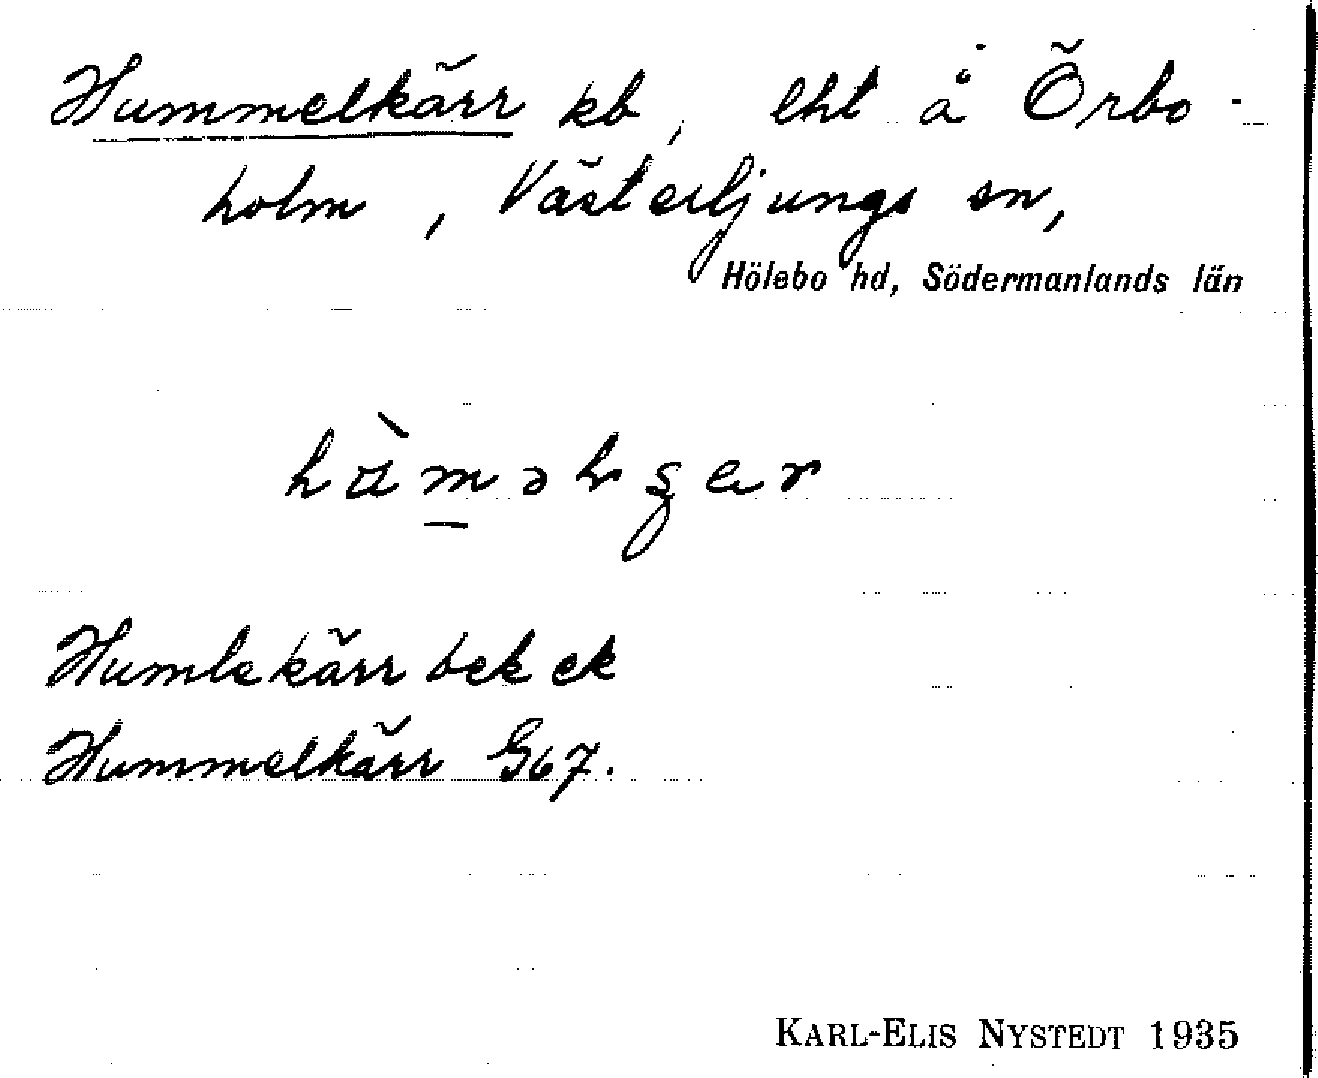 Hummelkärr kb, lht å Örbo-
holm, Västerljungs sn,
Hölebo hd, Södermanlands län
Humlekärr bek ek
Hummelkärr G67.
KARL-ELIS NYSTEDT 1935